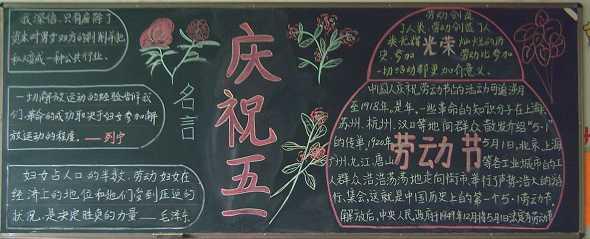 我深信,只有废除了
资本对男女双方的剥削并把
私人变成一种公共行业.
一切解放运动的经验告诉我
们,革命的成功取决于妇女参加解
放运动的程度。——列宁
妇女占人口的半数,劳动妇女在
经济上的地位和她们受到压迫的
状况,是决定胜负的力量——毛泽东
名言
庆祝五一
劳动创造
了人类,劳动创造了人
类光辉光荣灿烂的历
史.参加劳动比参加
一切活动都更加有意义.
中国人庆祝劳动节的活动可追溯
至1918年,是年,一些革命的知识分子在上海
苏州、杭州、汉口等地向群众散发介绍"5-1"
的传单,1920年5月1日,北京,上海
广州,九江,唐山等各工业城市的工
劳动节
人群众浩浩荡荡地走向街市,举行了声势浩大的游
行、集会,这就是中国历史上的第一个5·1劳动节,
解放后,中央人民政府于1949年12月将5月1日法定为劳动节